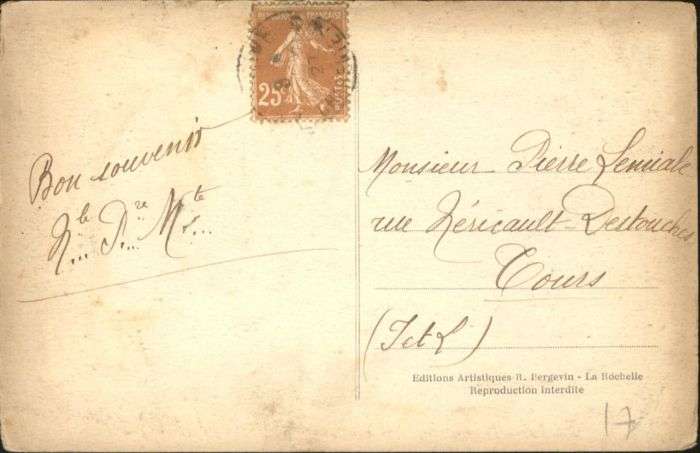 25c
Bon souvenir
Monsieur Pierre
rue Néricault-Destouches
Tours
(I et L)
Editions Artistiques R. Bergevin - La Rochelle
Reproduction Interdite
17